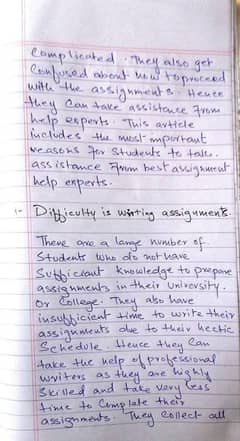 complicated. They also get
confused about how to proceed
with the assignments. Hence
they can take assistance from
help experts. This article
includes the most important
reasons for students to take
assistance from best assignment
help experts.
1- Difficulty is writing assignments.
There are a large number of
students who do not have
sufficient knowledge to prepare
assignments in their University.
or College. They also have
insufficient time to write their
assignments due to their hectic
Schedule. Hence they can
take the help of professional
writers as they are highly
skilled and take very less
time to complete their
assignments. They collect all